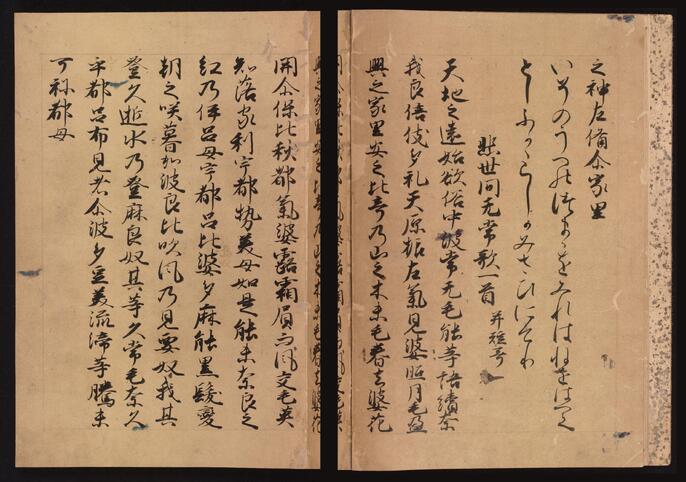 之神左備尓家里
いそのうへのつまゝをみれはねをはへて
としふかゝらしかみさひにけり
悲世間无常歌一首 并短哥
天地之遠始欲俗中波常无毛能等語續奈
我良倍伎多礼天原振左氣見婆照月毛盈
興之家里安之比奇乃山之木末毛春去婆花
開尓保比秋都氣婆露霜負而風交毛美
知落家利宇都勢美母如是能未奈良之
紅乃伊呂母宇都呂比婆多麻能黒髪變
朝之咲暮加波良比吹風乃見要奴我其
登久逝水乃登麻良奴其等久常毛奈久
宇都呂布見者尓波多豆美流渧等騰未
可祢都母